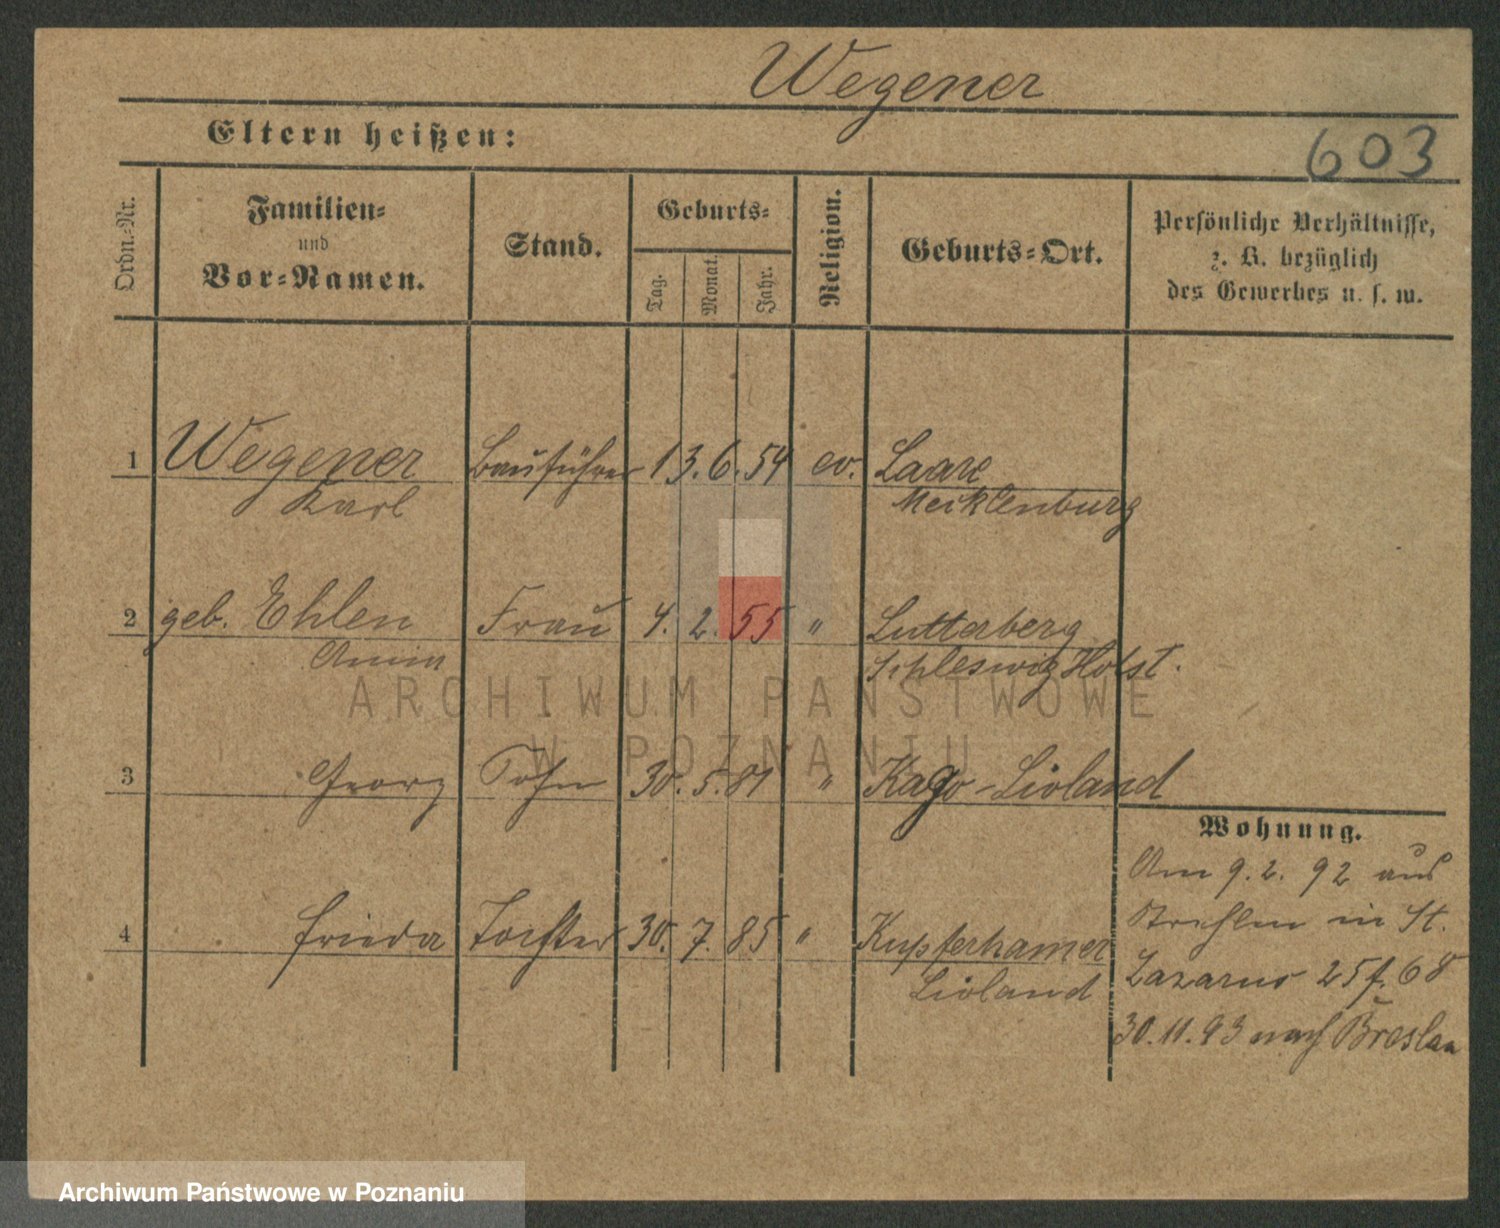 Wegener
Eltern heißen:
603
Ordn.-Nr.
Familien-
und
Vor-Namen.
Stand.
Geburts-
Tag.
Monat.
Jahr.
Religion.
Geburts-Ort.
Persönliche Verhältnisse,
z. B. bezüglich
des Gewerbes u. s. w.
1 Wegener Bauführer 13. 6. 54 ev. Laare
Karl Mecklenburg
2 geb. Ehlen Frau 4. 2. 55 " Lutterberg
Anna Schleswig Holst.
ARCHIWUM PAŃSTWOWE
W POZNANIU
3 Georg Sohn 30. 5. 81 " Kago-Livland
Wohnung.
Am 9. 2. 92 aus
Strehlen in St.
Lazarus 25 f. 68
30. 11. 93 nach Breslau
4 Frieda Tochter 30. 7. 85 " Kupferhamer
Livland
Archiwum Państwowe w Poznaniu